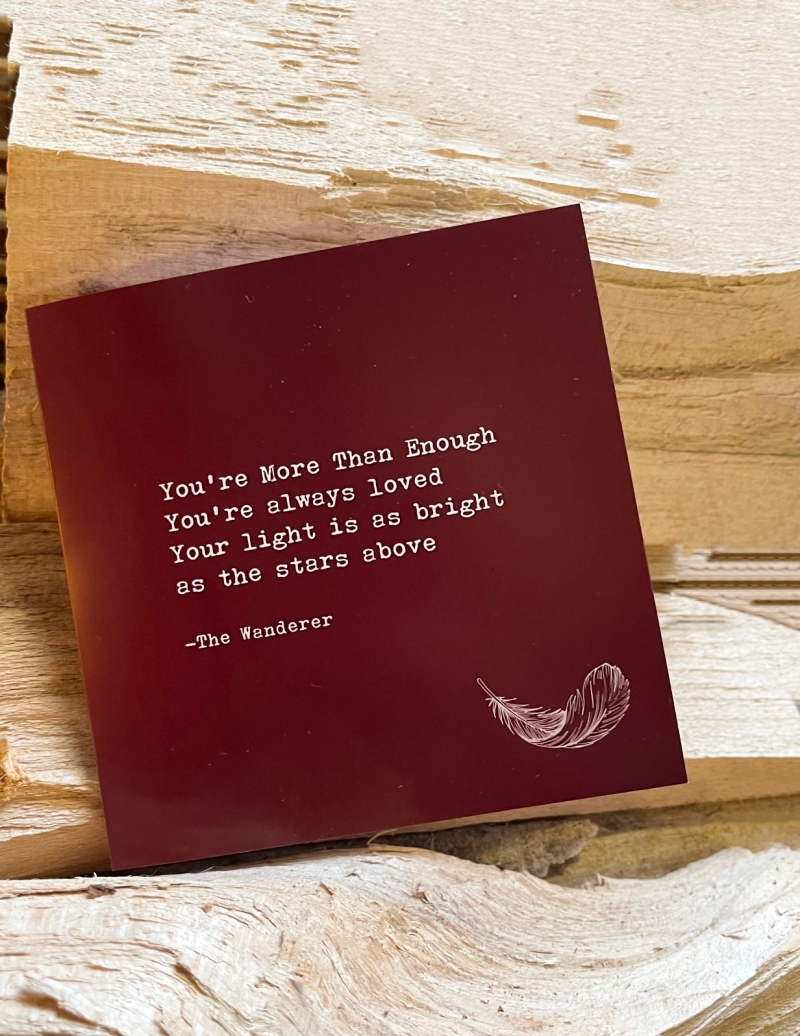 You're More Than Enough
You're always loved
Your light is as bright
as the stars above
-The Wanderer